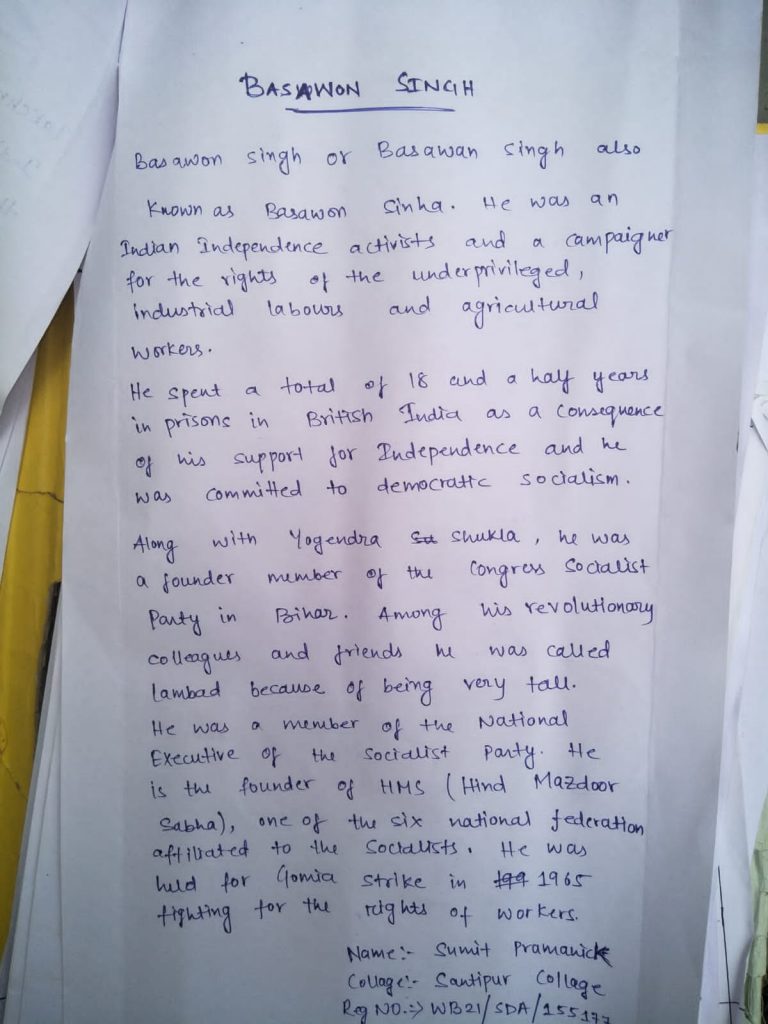 BASAWON SINGH
Basawon singh or Basawan singh also
Known as Basawon Sinha. He was an
Indian Independence activists and a campaigner
for the rights of the underprivileged,
industrial labours and agricultural
workers.
He spent a total of 18 and a half years
in prisons in British India as a consequence
of his support for Independence and he
was committed to democratic socialism.
Along with Yogendra Shukla, he was
a founder member of the Congress Socialist
Party in Bihar. Among his revolutionary
colleagues and friends he was called
lambad because of being very tall.
He was a member of the National
Executive of the Socialist Party. He
is the founder of HMS (Hind Mazdoor
Sabha), one of the six national federation
affiliated to the Socialists. He was
held for Gomia strike in 1965
fighting for the rights of workers.
Name:- Sumit Pramanick
Collage:- Santipur Collage
Reg NO.:-> WB21/SDA/155177